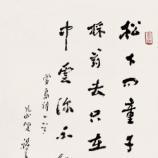 松下問童子
採藥去只在
中雲深不
賈島詩